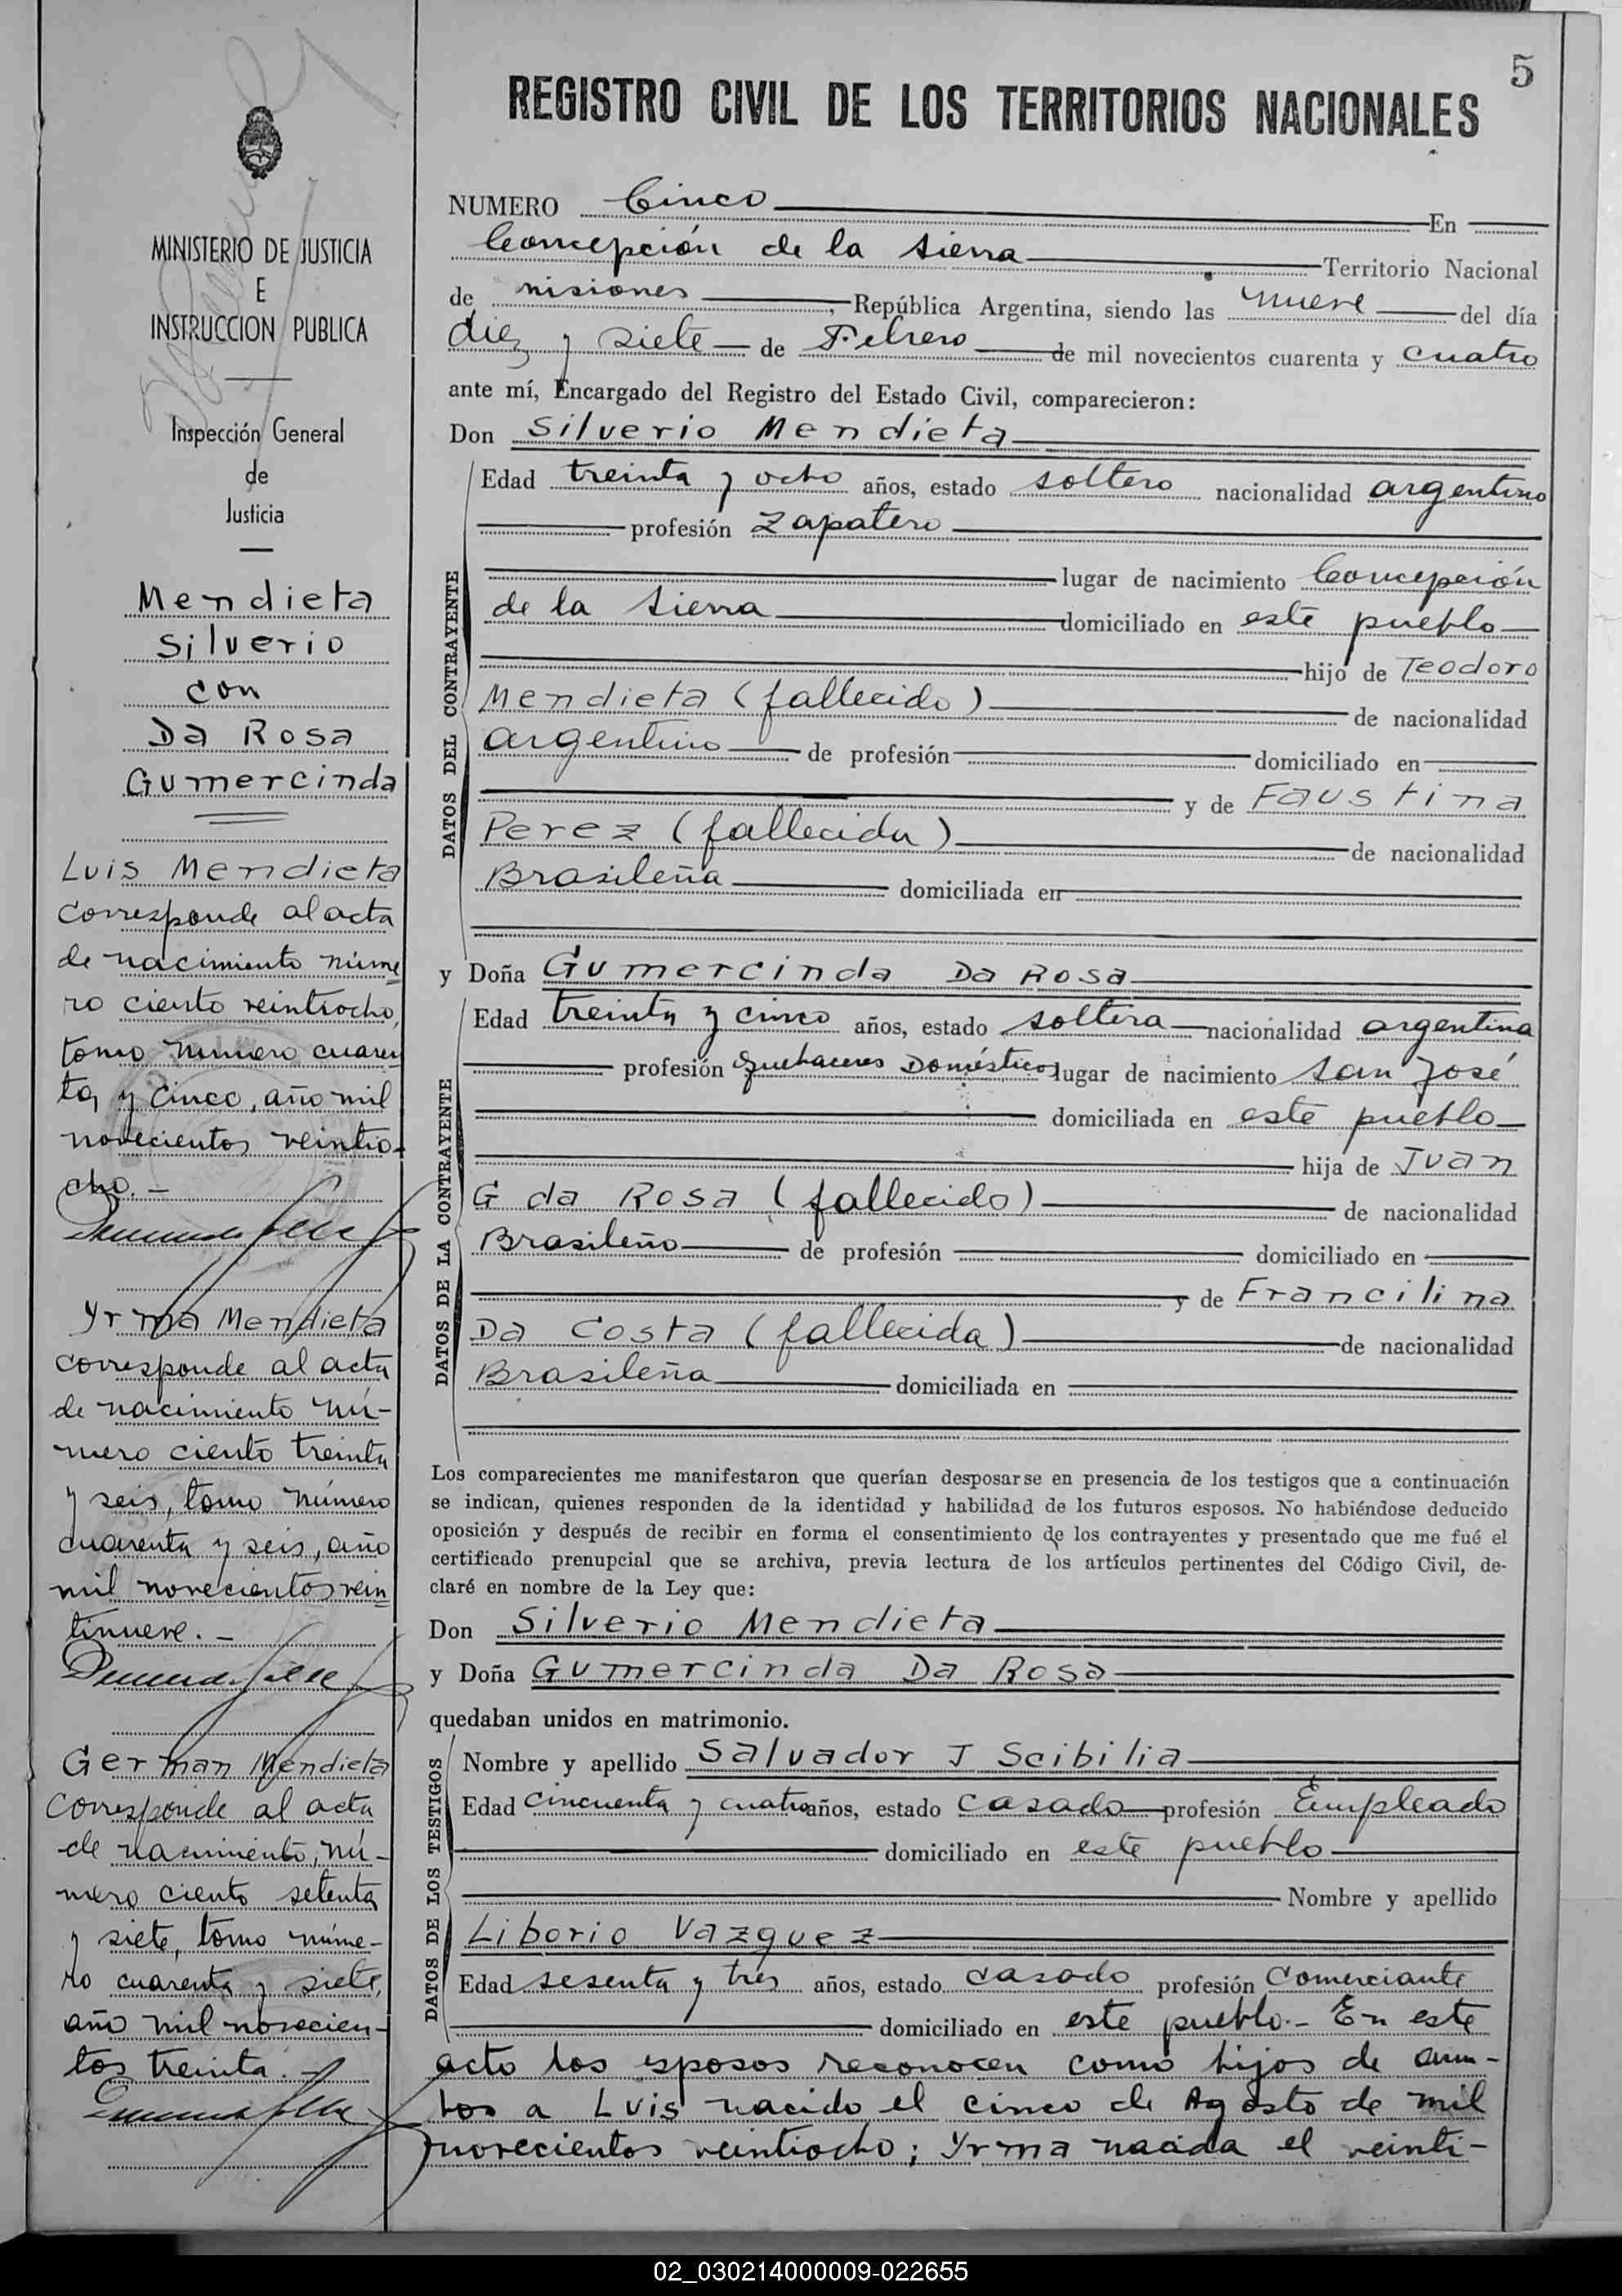 5
REGISTRO CIVIL DE LOS TERRITORIOS NACIONALES
MINISTERIO DE JUSTICIA
E
INSTRUCCION PUBLICA
Inspección General
de
Justicia
Mendieta
Silverio
con
Da Rosa
Gumercinda
Luis Mendieta
corresponde al acta
de nacimiento núme
ro ciento veintiocho,
tomo número cuaren
ta y cinco, año mil
novecientos veintio-
cho.-
Yrma Mendieta
corresponde al acta
de nacimiento nú-
mero ciento treinta
y seis, tomo número
cuarenta y seis, año
mil novecientos vein
tinueve.-
German Mendieta
corresponde al acta
de nacimiento, nú-
mero ciento setenta
y siete, tomo núme-
ro cuarenta y siete,
año mil novecien-
tos treinta.-
NUMERO Cinco En
Concepción de la Sierra Territorio Nacional
de misiones, República Argentina, siendo las nueve del día
diez y siete de Febrero de mil novecientos cuarenta y cuatro
ante mí, Encargado del Registro del Estado Civil, comparecieron:
Don Silverio Mendieta
DATOS DEL CONTRAYENTE
Edad treinta y ocho años, estado soltero nacionalidad argentino
profesión Zapatero
lugar de nacimiento Concepción
de la Sierra domiciliado en este pueblo
hijo de Teodoro
Mendieta (fallecido) de nacionalidad
argentino de profesión domiciliado en
y de Faustina
Perez (fallecida) de nacionalidad
Brasileña domiciliada en
y Doña Gumercinda Da Rosa
DATOS DE LA CONTRAYENTE
Edad treinta y cinco años, estado soltera nacionalidad argentina
profesión Quehaceres Domésticos lugar de nacimiento San José
domiciliada en este pueblo
hija de Juan
G da Rosa (fallecido) de nacionalidad
Brasileño de profesión domiciliado en
y de Francilina
Da Costa (fallecida) de nacionalidad
Brasileña domiciliada en
Los comparecientes me manifestaron que querían desposarse en presencia de los testigos que a continuación
se indican, quienes responden de la identidad y habilidad de los futuros esposos. No habiéndose deducido
oposición y después de recibir en forma el consentimiento de los contrayentes y presentado que me fué el
certificado prenupcial que se archiva, previa lectura de los artículos pertinentes del Código Civil, de-
claré en nombre de la Ley que:
Don Silverio Mendieta
y Doña Gumercinda Da Rosa
quedaban unidos en matrimonio.
DATOS DE LOS TESTIGOS
Nombre y apellido Salvador J Scibilia
Edad cincuenta y cuatro años, estado casado profesión Empleado
domiciliado en este pueblo
Nombre y apellido
Liborio Vazquez
Edad sesenta y tres años, estado casado profesión Comerciante
domiciliado en este pueblo.- En este
acto los esposos reconocen como hijos de am-
bos a Luis nacido el cinco de Agosto de mil
novecientos veintiocho; Yrma nacida el veinti-
02_030214000009-022655